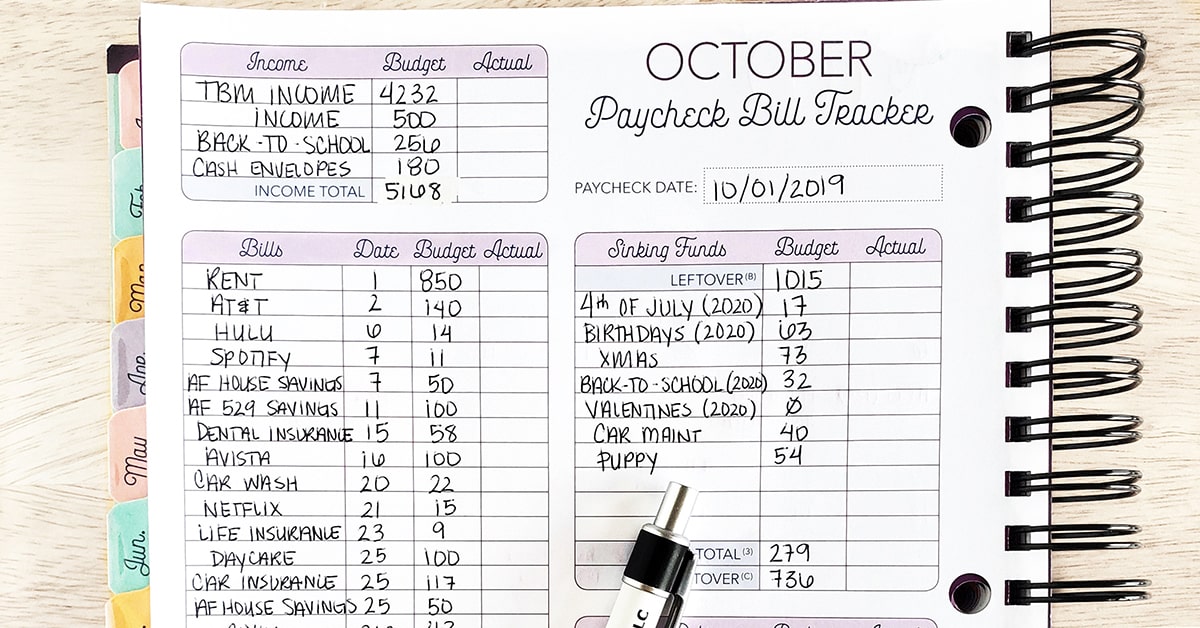 OCTOBER
Paycheck Bill Tracker
PAYCHECK DATE: 10/01/2019
Income Budget Actual
TBM INCOME 4232
INCOME 500
BACK-TO-SCHOOL 256
CASH ENVELOPES 180
INCOME TOTAL 5168
Bills Date Budget Actual
RENT 1 850
AT&T 2 140
HULU 6 14
SPOTIFY 7 11
AF HOUSE SAVINGS 7 50
AF 529 SAVINGS 11 100
DENTAL INSURANCE 15 58
AVISTA 16 100
CAR WASH 20 22
NETFLIX 21 15
LIFE INSURANCE 23 9
DAYCARE 25 100
CAR INSURANCE 25 117
AF HOUSE SAVINGS 25 50
Sinking Funds Budget Actual
LEFTOVER (B) 1015
4th OF JULY (2020) 17
BIRTHDAYS (2020) 63
XMAS 73
BACK-TO-SCHOOL (2020) 32
VALENTINES (2020) 0
CAR MAINT 40
PUPPY 54
TOTAL (3) 279
TOVER (C) 736
LC
Feb.
Mar.
Apr.
May
Jun.